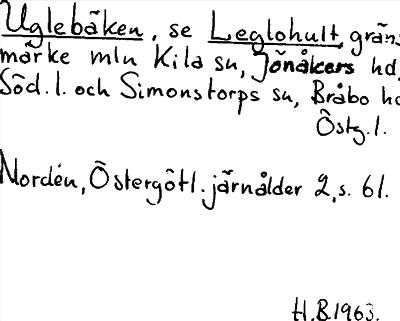 Uglebäken, se Leglohult, gräns
märke mln Kila sn, Jönåkers hd,
Söd. l. och Simonstorps sn, Bråbo hd
Östg. l.
Nordén, Östergötl. järnålder 2, s. 61.
H.B. 1963.